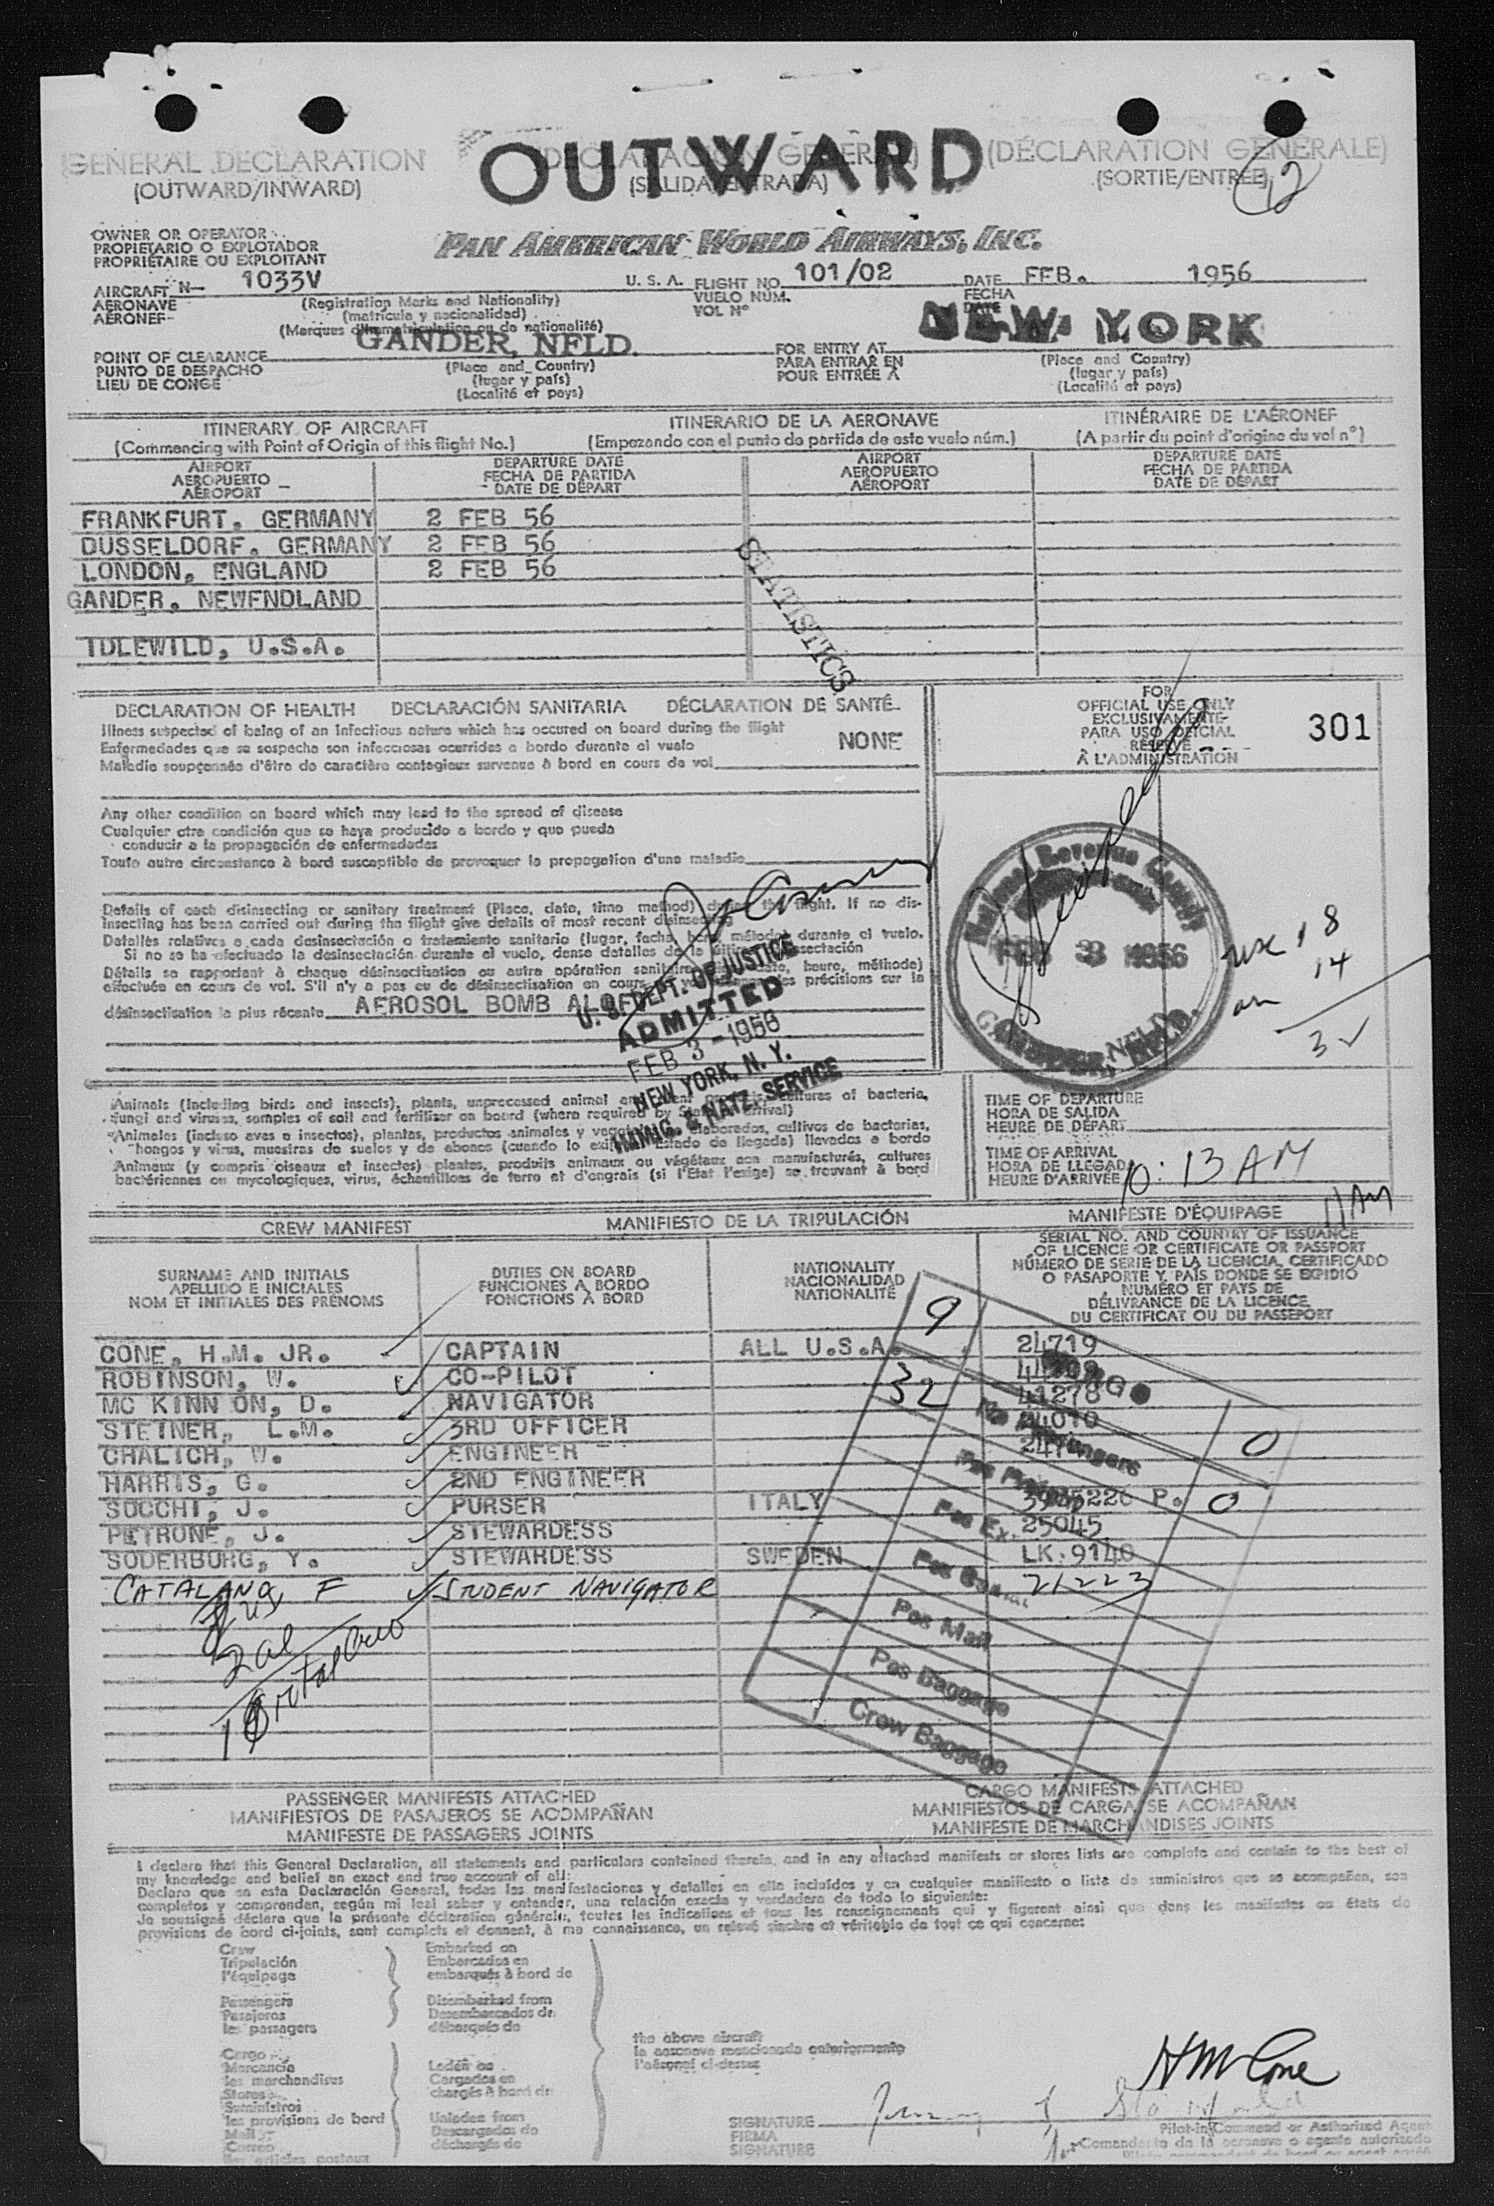 OUTWARD
GENERAL DECLARATION
(DÉCLARATION GÉNÉRALE)
(OUTWARD/INWARD)
(SORTIE/ENTRÉE)
12
OWNER OR OPERATOR
PROPIETARIO O EXPLOTADOR
PROPRIÉTAIRE OU EXPLOITANT
PAN AMERICAN WORLD AIRWAYS, INC.
AIRCRAFT N- 1033V U. S. A. FLIGHT NO. 101/02 DATE FEB. 1956
AERONAVE (Registration Marks and Nationality) VUELO NÚM. FECHA
AÉRONEF- (matrícula y nacionalidad) VOL Nº DATE
GANDER, NFLD. NEW YORK
POINT OF CLEARANCE (Place and Country) FOR ENTRY AT (Place and Country)
PUNTO DE DESPACHO (lugar y país) PARA ENTRAR EN (lugar y país)
LIEU DE CONGÉ (Localité et pays) POUR ENTRÉE À (Localité et pays)
ITINERARY OF AIRCRAFT ITINERARIO DE LA AERONAVE ITINÉRAIRE DE L'AÉRONEF
(Commencing with Point of Origin of this flight No.) (Empezando con el punto de partida de este vuelo núm.) (A partir du point d'origine du vol nº)
AIRPORT DEPARTURE DATE AIRPORT DEPARTURE DATE
AEROPUERTO FECHA DE PARTIDA AEROPUERTO FECHA DE PARTIDA
AÉROPORT DATE DE DÉPART AÉROPORT DATE DE DÉPART
FRANKFURT, GERMANY 2 FEB 56
DUSSELDORF, GERMANY 2 FEB 56
LONDON, ENGLAND 2 FEB 56
GANDER, NEWFNDLAND
IDLEWILD, U.S.A.
STATISTICS
DECLARATION OF HEALTH DECLARACIÓN SANITARIA DÉCLARATION DE SANTÉ
Illness suspected of being of an infectious nature which has occured on board during the flight
Enfermedades que se sospecha son infecciosas ocurridas a bordo durante el vuelo NONE
Maladie soupçonnée d'être de caractère contagieux survenue à bord en cours de vol
FOR
OFFICIAL USE ONLY
EXCLUSIVAMENTE
PARA USO OFICIAL
RÉSERVÉ
À L'ADMINISTRATION
301
Any other condition on board which may lead to the spread of disease
Cualquier otra condición que se haya producido a bordo y que pueda
conducir a la propagación de enfermedades
Toute autre circonstance à bord susceptible de provoquer la propagation d'une maladie
Details of each disinsecting or sanitary treatment (Place, date, time method) during the flight. If no dis-
insecting has been carried out during the flight give details of most recent disinsecting
Detalles relativos a cada desinsectación o tratamiento sanitario (lugar, fecha, hora, método) durante el vuelo.
Si no se ha efectuado la desinsectación durante el vuelo, dense detalles de la última desinsectación
Détails se rapportant à chaque désinsectisation ou autre opération sanitaire date, heure, méthode)
effectuée en cours de vol. S'il n'y a pas eu de désinsectisation en cours précisions sur la
désinsectisation la plus récente AEROSOL BOMB
U. S. DEPT. OF JUSTICE
ADMITTED
FEB 3 - 1956
NEW YORK, N. Y.
IMMIG. & NATZ. SERVICE
National Revenue Canada
FEB 3 1956
GANDER, NFLD.
18
14
3
Animals (including birds and insects), plants, unprocessed animal and plant products, cultures of bacteria,
fungi and viruses, samples of soil and fertiliser on board (where required by State of arrival)
Animales (incluso aves e insectos), plantas, productos animales y vegetales no elaborados, cultivos de bacterias,
hongos y virus, muestras de suelos y de abonos (cuando lo exija el Estado de llegada) llevados a bordo
Animaux (y compris oiseaux et insectes) plantes, produits animaux ou végétaux non manufacturés, cultures
bactériennes ou mycologiques, virus, échantillons de terre et d'engrais (si l'Etat l'exige) se trouvant à bord
TIME OF DEPARTURE
HORA DE SALIDA
HEURE DE DÉPART
TIME OF ARRIVAL
HORA DE LLEGADA 10:13 AM
HEURE D'ARRIVÉE
11 AM
CREW MANIFEST MANIFIESTO DE LA TRIPULACIÓN MANIFESTE D'ÉQUIPAGE
SURNAME AND INITIALS DUTIES ON BOARD NATIONALITY
APELLIDO E INICIALES FUNCIONES A BORDO NACIONALIDAD
NOM ET INITIALES DES PRÉNOMS FONCTIONS À BORD NATIONALITÉ
SERIAL NO. AND COUNTRY OF ISSUANCE
OF LICENCE OR CERTIFICATE OR PASSPORT
NÚMERO DE SERIE DE LA LICENCIA, CERTIFICADO
O PASAPORTE Y PAÍS DONDE SE EXPIDIÓ
NUMÉRO ET PAYS DE
DÉLIVRANCE DE LA LICENCE
DU CERTIFICAT OU DU PASSEPORT
CONE, H.M. JR. CAPTAIN ALL U.S.A. 24719
ROBINSON, W. CO-PILOT
MC KINN ON, D. NAVIGATOR 41278
STEINER, L.M. 3RD OFFICER 44010
CHALICH, W. ENGINEER
HARRIS, G. 2ND ENGINEER
SOCCHI, J. PURSER ITALY
PETRONE, J. STEWARDESS 25045
SODERBURG, Y. STEWARDESS SWEDEN LK. 9140
CATALANO, F STUDENT NAVIGATOR 21223
9
32
0
0
No Passengers
Pos Mail
Pos Baggage
Crew Baggage
PASSENGER MANIFESTS ATTACHED CARGO MANIFESTS ATTACHED
MANIFIESTOS DE PASAJEROS SE ACOMPAÑAN MANIFIESTOS DE CARGA SE ACOMPAÑAN
MANIFESTE DE PASSAGERS JOINTS MANIFESTE DE MARCHANDISES JOINTS
I declare that this General Declaration, all statements and particulars contained therein, and in any attached manifests or stores lists are complete and contain to the best of
my knowledge and belief an exact and true account of all:
Declaro que en esta Declaración General, todas las manifestaciones y detalles en ella incluídos y en cualquier manifiesto o lista de suministros que se acompañen, son
completos y comprenden, según mi leal saber y entender, una relación exacta y verdadera de todo lo siguiente:
Je soussigné déclare que la présente déclaration générale, toutes les indications et tous les renseignements qui y figurent ainsi que dans les manifestes ou états de
provisions de bord ci-joints, sont complets et donnent, à ma connaissance, un relevé sincère et véritable de tout ce qui concerne:
Crew Embarked on
Tripulación Embarcados en
l'équipage embarqués à bord de
Passengers Disembarked from
Pasajeros Desembarcados de
les passagers débarqués de
the above aircraft
la aeronave mencionada anteriormente
l'aéronef ci-dessus
Cargo
Mercancía Laden on
les marchandises Cargados en
Stores chargés à bord de
Suministros
les provisions de bord Unladen from
Mail Descargados de
Correo déchargés de
les articles postaux
HM Cone
SIGNATURE Pilot-in-Command or Authorized Agent
FIRMA Comandante de la aeronave o agente autorizado
SIGNATURE